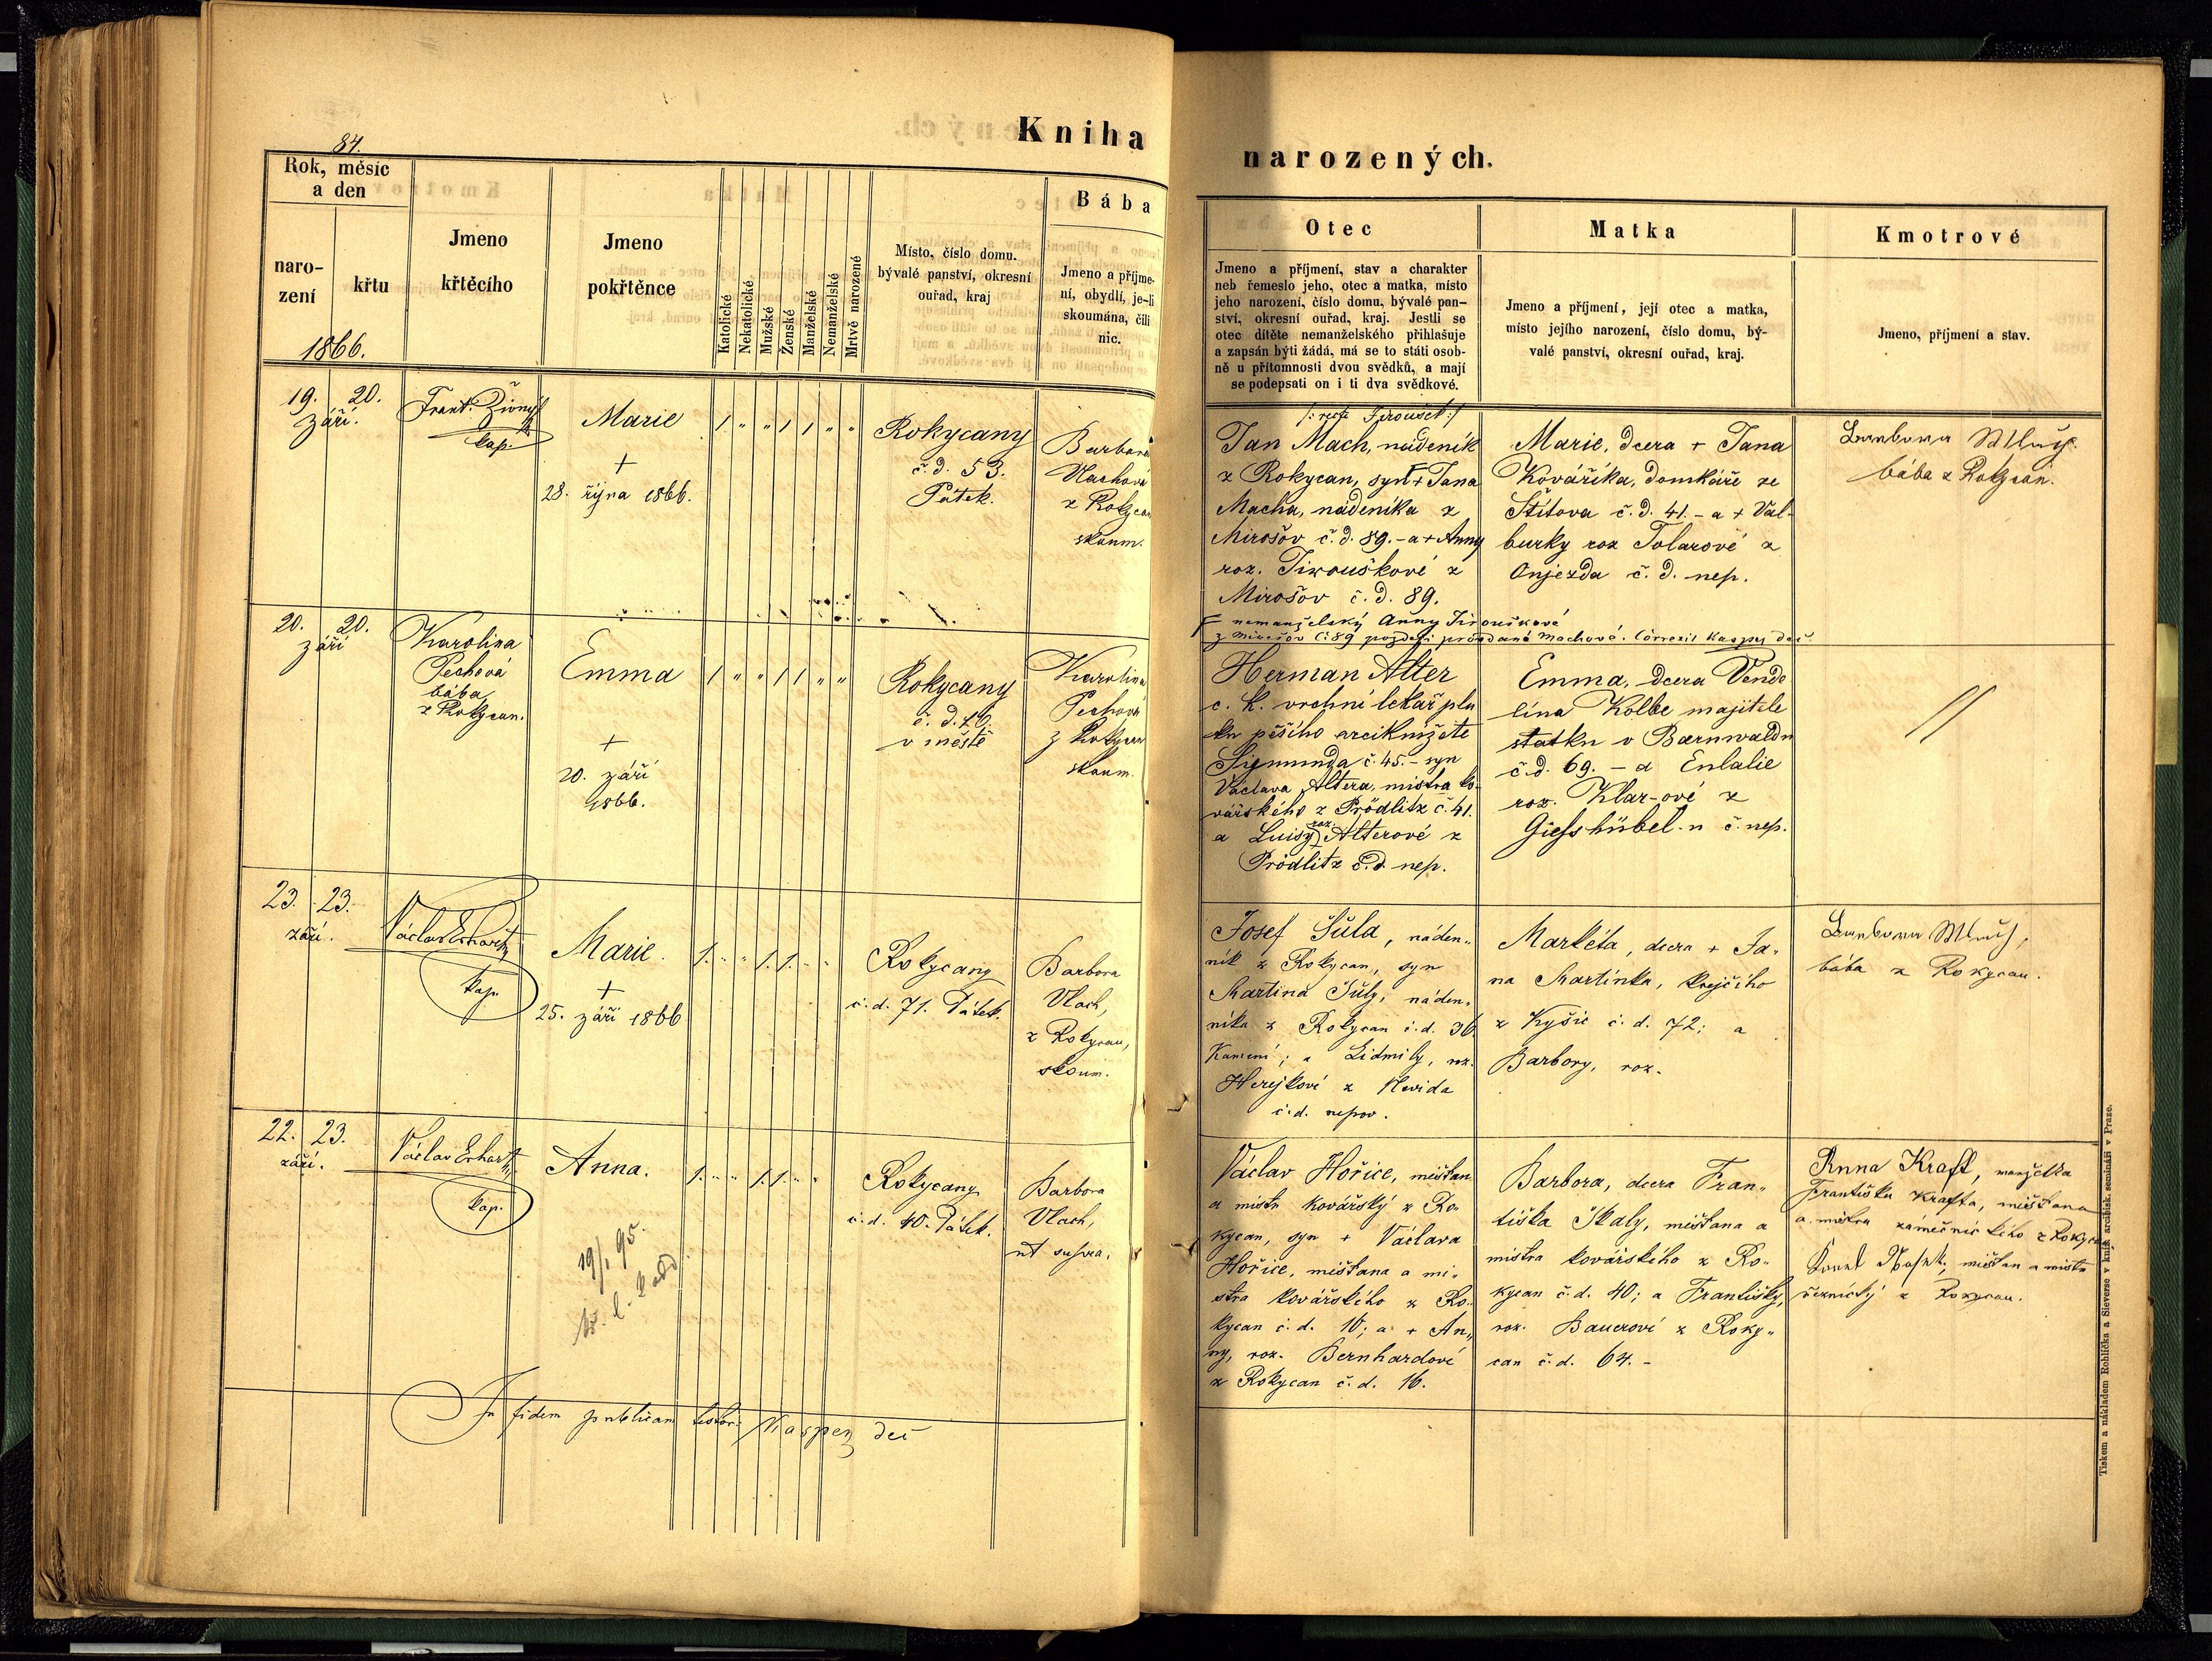 84.
Kniha
narozených.
Rok, měsíc
a den
naro-
zení
křtu
1866.
Jmeno
křtěcího
Jmeno
pokřtěnce
Katolické
Nekatolické
Mužské
Ženské
Manželské
Nemanželské
Mrtvě narozené
Místo, číslo domu.
bývalé panství, okresní
ouřad, kraj
Bába
Jmeno a příjme-
ní, obydlí, je-li
skoumána, čili
nic.
Otec
Jmeno a příjmení, stav a charakter
neb řemeslo jeho, otec a matka, místo
jeho narození, číslo domu, bývalé pan-
ství, okresní ouřad, kraj. Jestli se
otec dítěte nemanželského přihlašuje
a zapsán býti žádá, má se to státi osob-
ně u přítomnosti dvou svědků, a mají
se podepsati on i ti dva svědkové.
Matka
Jmeno a příjmení, její otec a matka,
místo jejího narození, číslo domu, bý-
valé panství, okresní ouřad, kraj.
Kmotrové
Jmeno, příjmení a stav.
19. 20.
září.
Frant. Živný
kap.
Marie
+
28. října 1866.
1 " " 1 1 " "
Rokycany
č. d. 53.
Pátek.
Barbora
Vlachová
z Rokycan
skoum.
Jan Mach, nádeník
z Rokycan, syn + Jana
Macha, nádeníka z
Mirošov č. d. 89. - a + Anny
roz. Jirouškové z
Mirošov č. d. 89.
nemanželský Anny Jirouškové
z Mirošov č. 89 později provdané Machové. Correxit Kasper děk.
Marie, dcera + Jana
Kováříka, domkáře ze
Štítova č. d. 41. - a + Val-
burky roz Tolarové z
Oujezda č. d. nep.
bába z Rokycan.
20. 20.
září
Karolina
Pechová
bába
z Rokycan.
Emma
+
20. září
1866.
1 " " 1 1 " "
Rokycany
č. d.
v městě
Karolina
Pechová
z Rokycan
skoum.
Herman Alter
c. k. vrchní lékař plu
ku pěšího arciknížete
Sigmunda č. 45. - syn
Václava Altera, mistra ko-
vářského z Prödlitz č. 41.
a Luisy roz. Alterové z
Prödlitz č. d. nep.
Emma, dcera Vende
lína Kolbe majitele
statku v Bærnwaldu
č. d. 69. - a Eulalie
roz. Klar-ové z
Giesshübel-u č. nep.
//
23. 23.
září.
Václav Erhart
kap.
Marie.
+
25. září 1866
1. " " 1. 1. " "
Rokycany
č. d. 71. Pátek.
Barbora
Vlach,
z Rokycan,
skoum.
Josef Šůla, náden-
ník z Rokycan, syn
Martina Šůly, náden-
níka z Rokycan č. d. 36
Kamení; a Lidmily, roz.
Herejkové z
č. d. nepov.
Markéta, dcera + Ja-
na Martínka, krejčího
z Kyšic č. d. 72; a
Barbory, roz.
bába z Rokycan.
22. 23.
září.
Václav Erhart
kap.
Anna.
19/1 95.
1. " " 1. 1. " "
Rokycany
č. d. 40. Pátek.
Barbora
Vlach,
ut supra.
Václav Hořice, měšťan
a mistr kovářský z Ro-
kycan, syn + Václava
Hořice, měšťana a mi-
stra kovářského z Ro-
kycan č. d. 10; a + An-
ny, roz. Bernhardové
z Rokycan č. d. 16.
Barbora, dcera Fran-
tiška Skaly, měšťana a
mistra kovářského z Ro-
kycan č. d. 40; a Františky,
roz. Bauerové z Roky-
can č. d. 64. -
Anna Kraft, manželka
Františka Krafta, měšťana
a mistra zámečnického z Rokycan
měšťan a mistr
řeznický z Rokycan.
In fidem publicam testor Kasper děk
Tiskem a nákladem Rohlíčka a Sieverse v kníž. arcibisk. semináři v Praze.